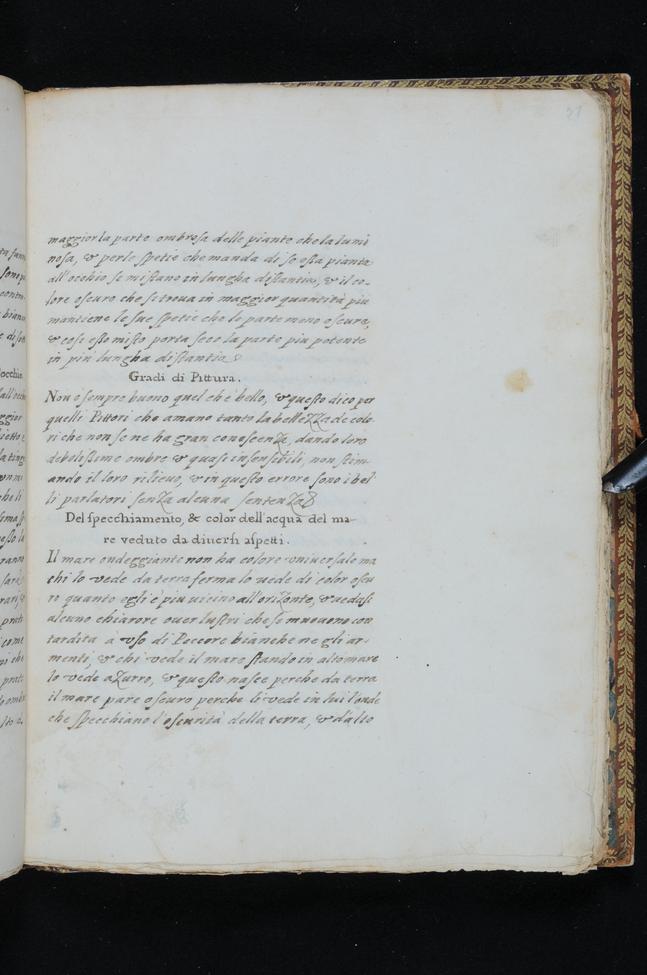 maggior la parte ombrosa delle piante che la lumi
nosa, & per le spetie che manda di se essa pianta
all'occhio se mistano in lungha distantia, & il co-
lore oscuro che si troua in maggior quantità piu
mantiene le sue spetie che le parte meno oscura,
& cosi esso misto porta seco la parte piu potente
in piu lungha distantia
Gradi di Pittura.
Non è sempre buono quel ch'è bello, & questo dico per
quelli Pittori che amano tanto la bellezza de colo
ri che non se ne ha gran conoscenza, dando loro
debolissime ombre & quasi insensibili, non stim-
ando il loro rilieuo, & in questo errore sono i bel
li parlatori senza alcuna sentenza
Del specchiamento, & color dell'acqua del ma-
re veduto da diuersi aspetti.
Il mare ondeggiante non ha colore vniuersale ma
chi lo vede da terra ferma lo uede di color oscu
ro quanto egli è piu uicino all'orizonte, & uedasi
alcuno chiarore ouer lustri che si muouono con
tardita à vso di Peccore bianche ne gli ar-
menti, & chi vede il mare stando in alto mare
lo vede azurro, & questo nasce perche da terra
il mare pare oscuro perche li vede in lui l'onde
che specchiano l'oscurità della terra, & d'alto